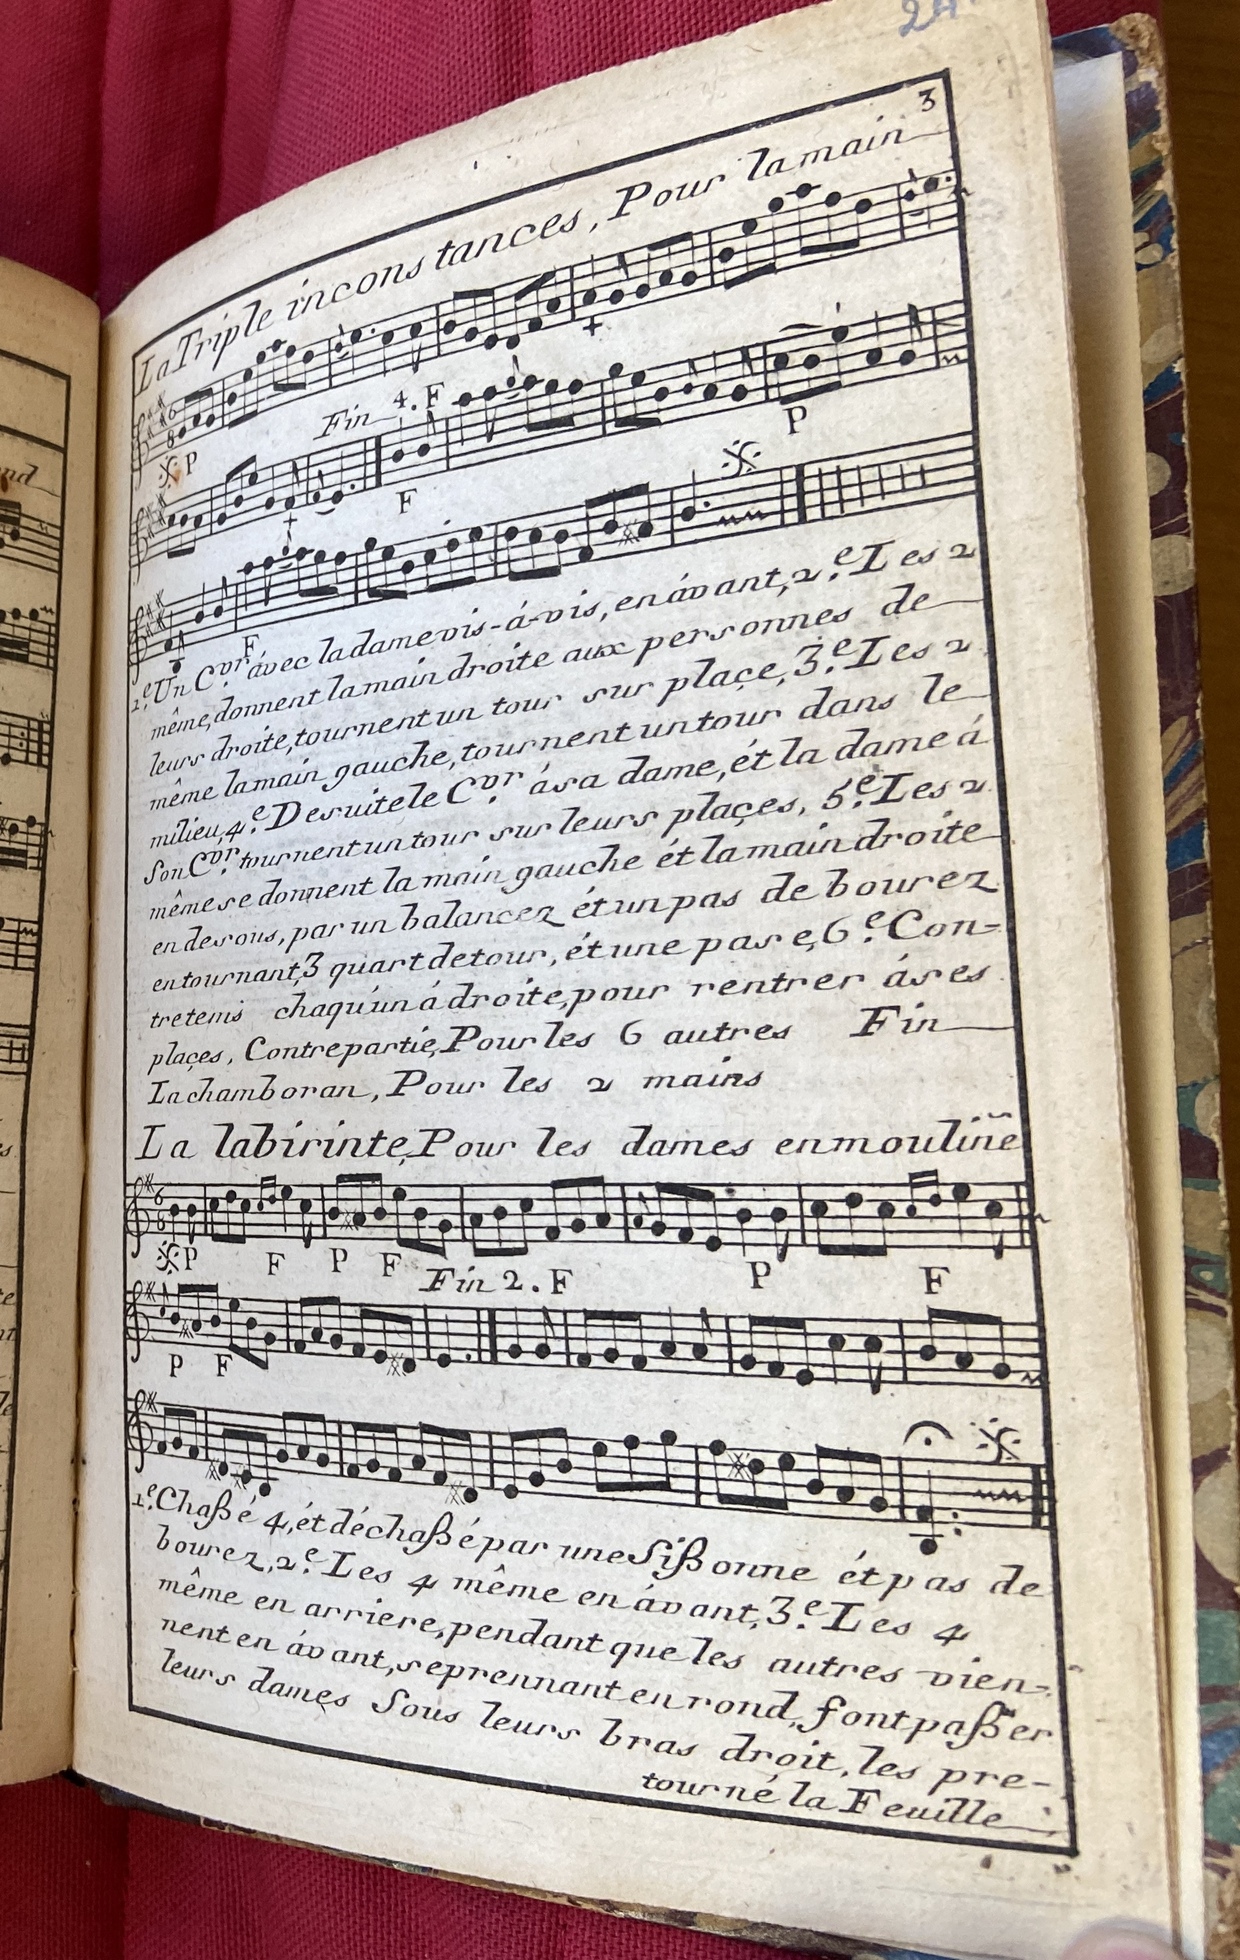 24
3
La Triple inconstances, Pour la main
6
8
P
Fin 4. F
F
P
F
1.e Un C.vr ávec la dame vis-á-vis, en ávant, 2.e Les 2
même, donnent la main droite aux personnes de
leurs droite, tournent un tour sur plaçe, 3.e Les 2
même la main gauche, tournent un tour dans le
milieu, 4.e De suite le C.vr á sa dame, ét la dame á
Son C.vr tournent un tour sur leurs plaçes, 5.e Les 2
même se donnent la main gauche ét la main droite
en desous, par un balancez ét un pas de bourez
en tournant, 3 quart de tour, ét une pase, 6.e Con-
tretems chaqu'un á droite, pour rentrer á ses
plaçes, Contrepartie, Pour les 6 autres Fin
La chamboran, Pour les 2 mains
La labirinte, Pour les dames en mouline
6
8
P F P F P F
Fin 2. F
P F
1.e Chaßé 4, ét déchaßé par une Sißonne ét pas de
bourez, 2.e Les 4 même en ávant, 3.e Les 4
même en arriere, pendant que les autres vien-
nent en ávant, se prennant en rond, font paßer
leurs dames Sous leurs bras droit, les pre-
tourné la Feuille